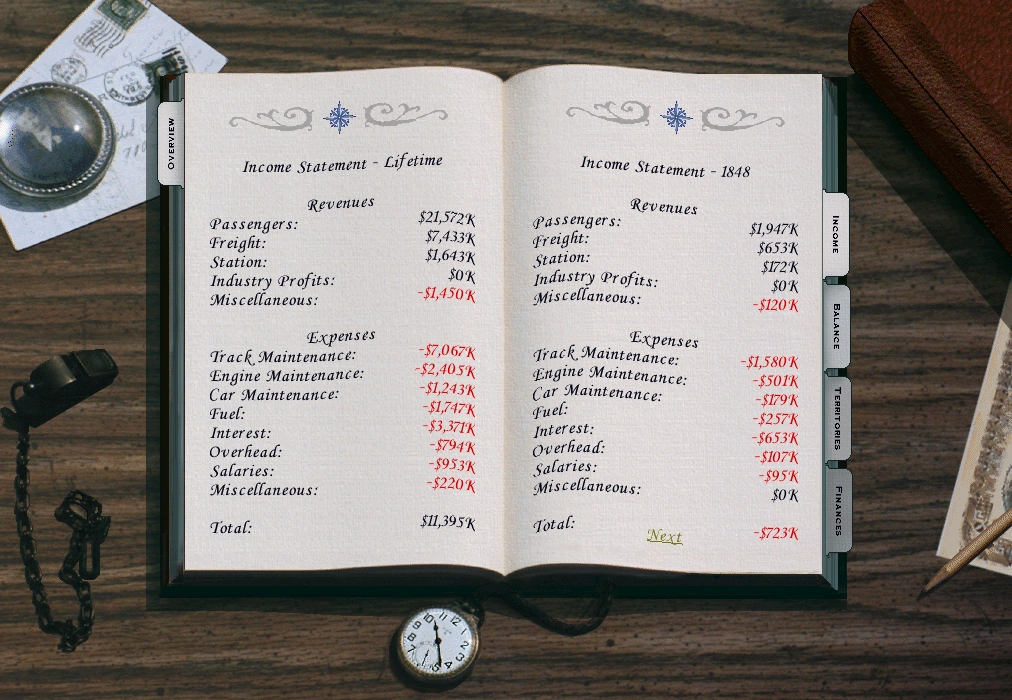 OVERVIEW
Income Statement - Lifetime
Revenues
Passengers: $21,572K
Freight: $7,433K
Station: $1,643K
Industry Profits: $0K
Miscellaneous: -$1,450K
Expenses
Track Maintenance: -$7,067K
Engine Maintenance: -$2,405K
Car Maintenance: -$1,243K
Fuel: -$1,747K
Interest: -$3,371K
Overhead: -$794K
Salaries: -$953K
Miscellaneous: -$220K
Total: $11,395K
Income Statement - 1848
Revenues
Passengers: $1,947K
Freight: $653K
Station: $172K
Industry Profits: $0K
Miscellaneous: -$120K
Expenses
Track Maintenance: -$1,580K
Engine Maintenance: -$501K
Car Maintenance: -$179K
Fuel: -$257K
Interest: -$653K
Overhead: -$107K
Salaries: -$95K
Miscellaneous: $0K
Total: -$723K
Next
INCOME
BALANCE
TERRITORIES
FINANCES